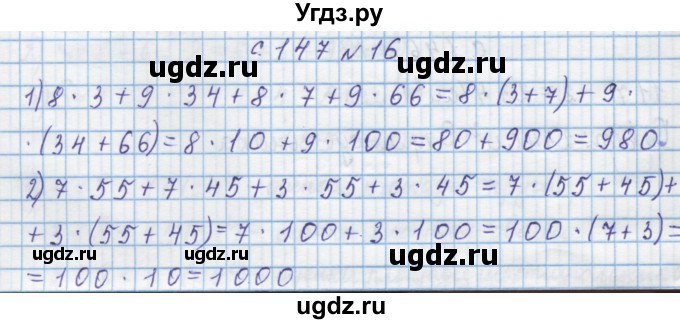 Угдз.ру
с. 147 №16
ugdz.ru ugdz.ru
1) 8 · 3 + 9 · 34 + 8 · 7 + 9 · 66 = 8 · (3 + 7) + 9 ·
· (34 + 66) = 8 · 10 + 9 · 100 = 80 + 900 = 980.
ugdz.ru
2) 7 · 55 + 7 · 45 + 3 · 55 + 3 · 45 = 7 · (55 + 45) +
+ 3 · (55 + 45) = 7 · 100 + 3 · 100 = 100 · (7 + 3) =
ugdz.ru ugdz.ru
= 100 · 10 = 1000
ugdz.ru